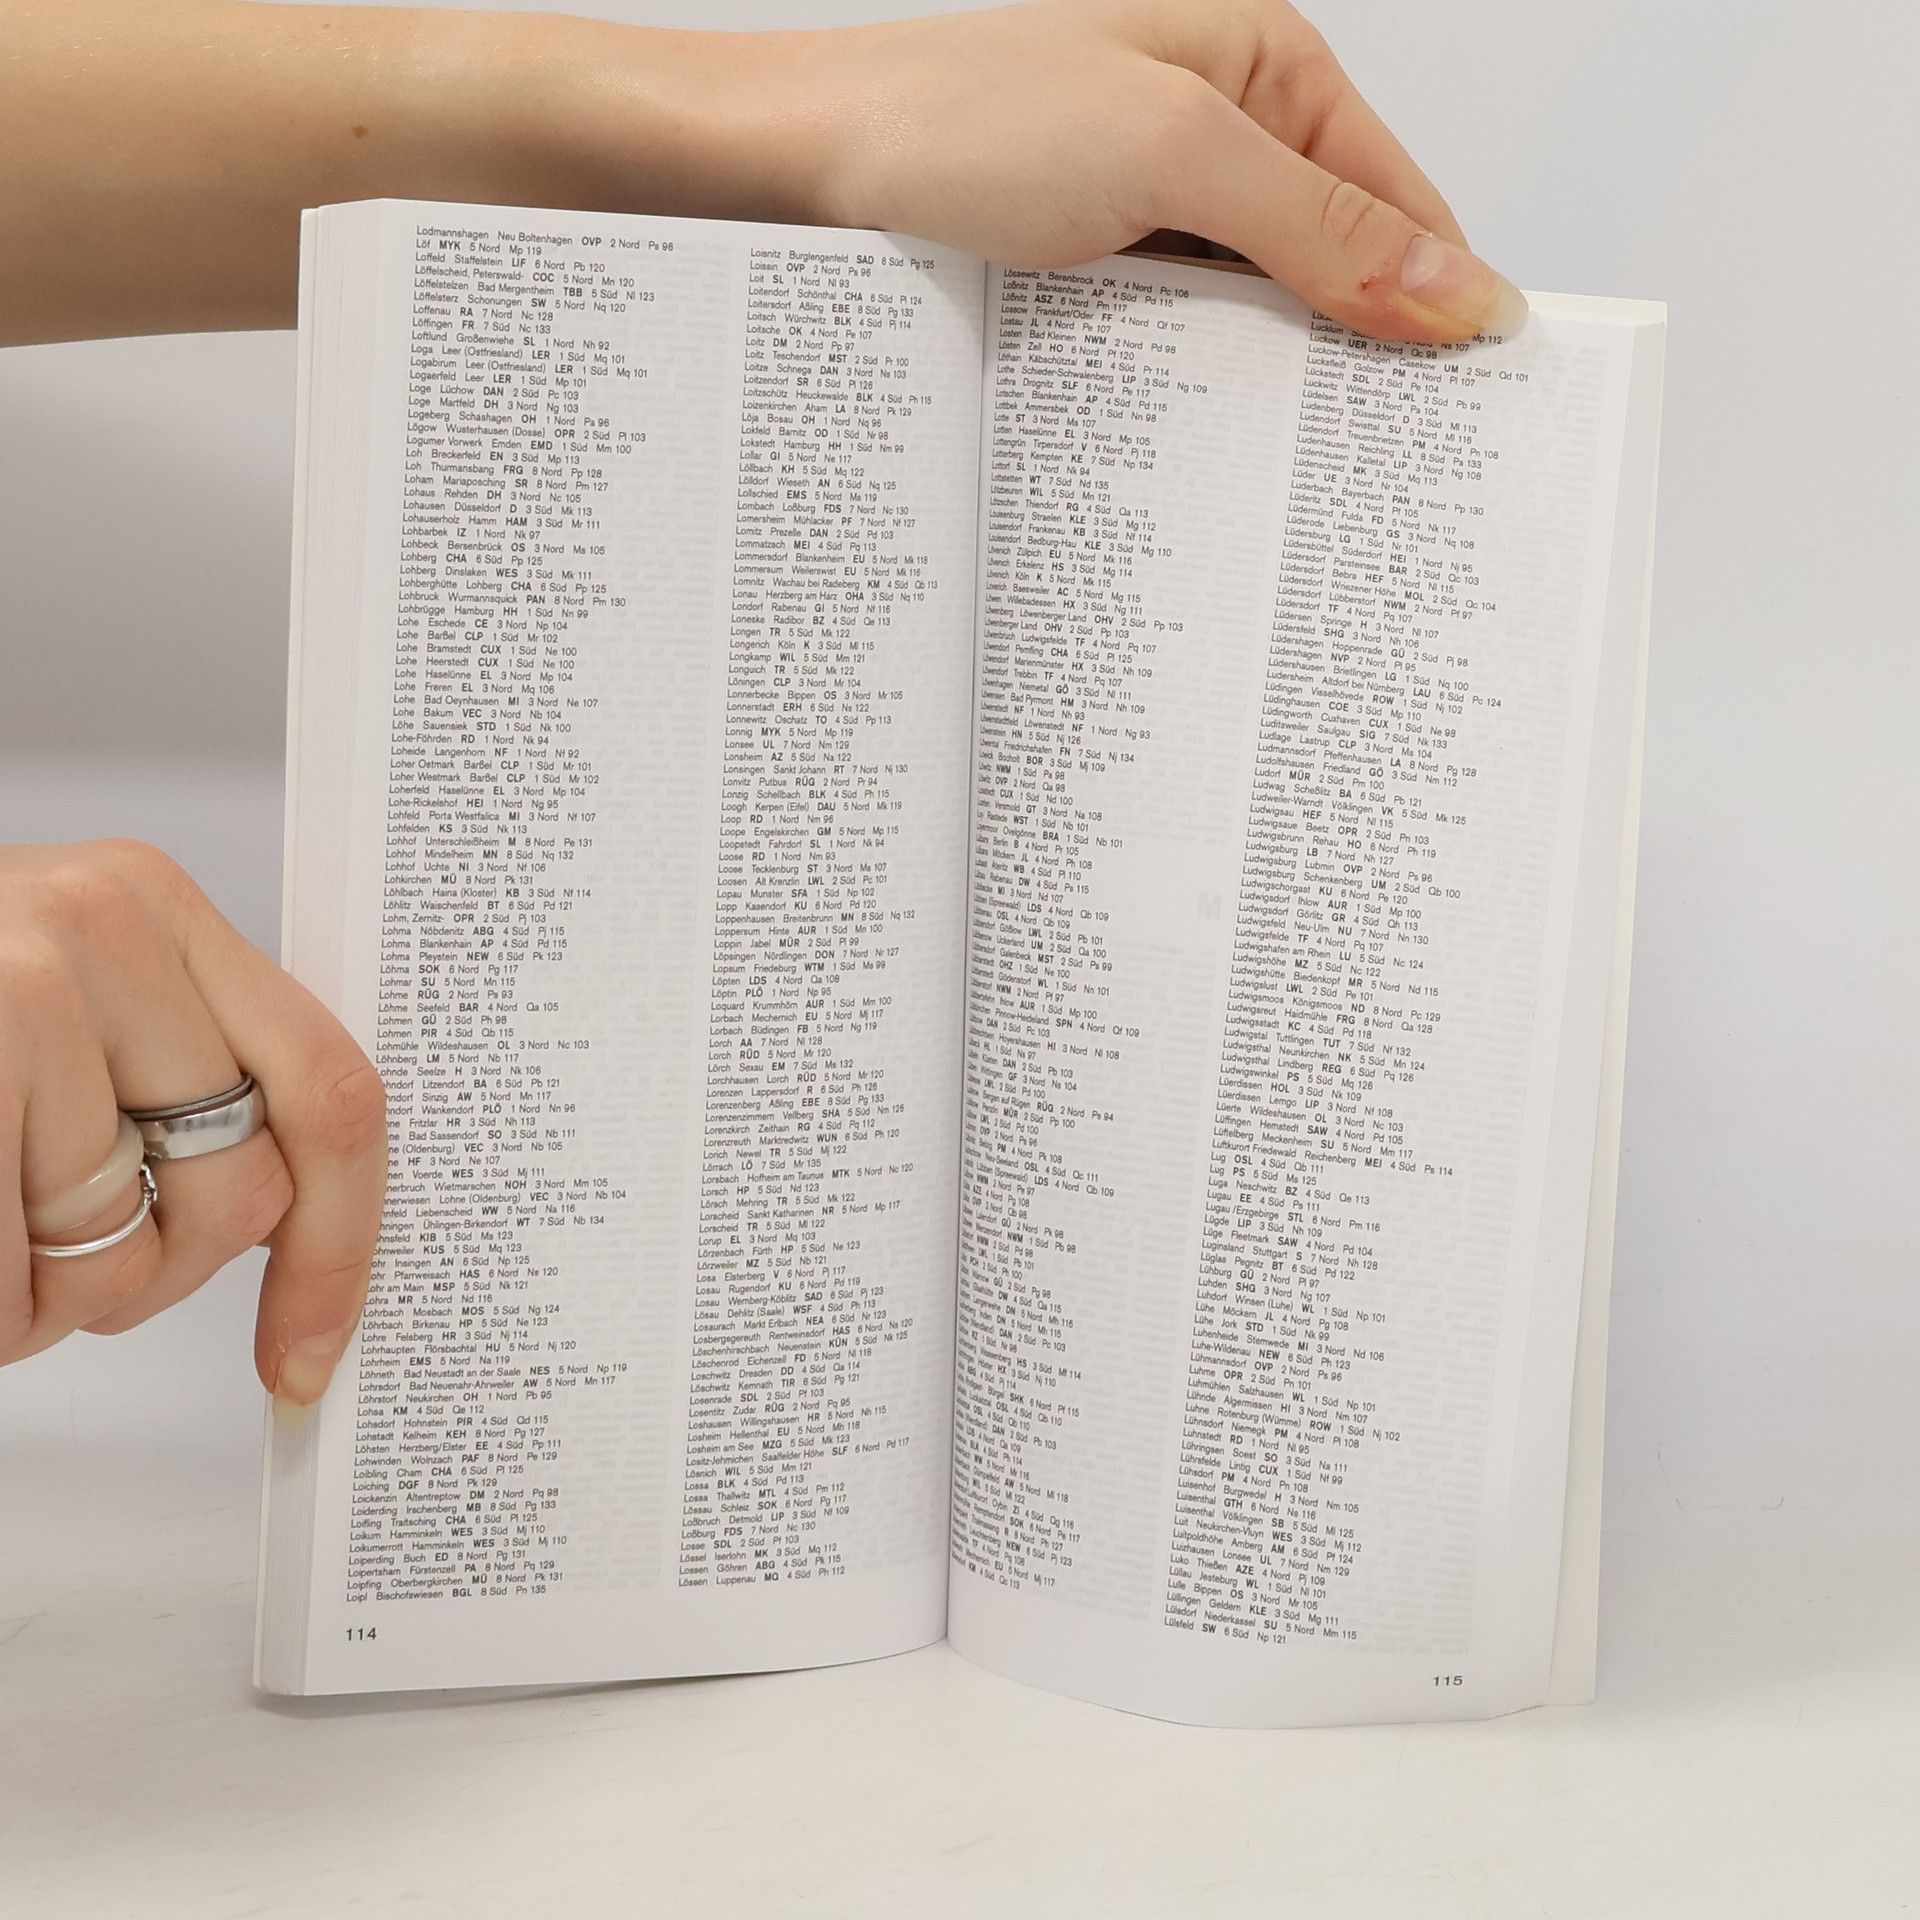 Lodmannshagen Neu Boltenhagen OVP 2 Nord Ps 96
Löf MYK 5 Nord Mp 119
Loffeld Staffelstein LIF 6 Nord Pb 120
Löffelscheid, Peterswald- COC 5 Nord Mn 120
Löffelstelzen Bad Mergentheim TBB 5 Süd Nl 123
Löffelsterz Schonungen SW 5 Nord Nq 120
Loffenau RA 7 Nord Nc 128
Löffingen FR 7 Süd Nc 133
Loftlund Großenwiehe SL 1 Nord Nh 92
Loga Leer (Ostfriesland) LER 1 Süd Mq 101
Logabirum Leer (Ostfriesland) LER 1 Süd Mq 101
Logaerfeld Leer LER 1 Süd Mp 101
Loge Lüchow DAN 2 Süd Pc 103
Loge Martfeld DH 3 Nord Ng 103
Logeberg Schashagen OH 1 Nord Pa 96
Lögow Wusterhausen (Dosse) OPR 2 Süd Pl 103
Logumer Vorwerk Emden EMD 1 Süd Mm 100
Loh Breckerfeld EN 3 Süd Mp 113
Loh Thurmansbang FRG 8 Nord Pp 128
Loham Mariaposching SR 8 Nord Pm 127
Lohaus Rehden DH 3 Nord Nc 105
Lohausen Düsseldorf D 3 Süd Mk 113
Lohauserholz Hamm HAM 3 Süd Mr 111
Lohbarbek IZ 1 Nord Nk 97
Lohbeck Bersenbrück OS 3 Nord Ms 105
Lohberg CHA 6 Süd Pp 125
Lohberg Dinslaken WES 3 Süd Mk 111
Lohberghütte Lohberg CHA 6 Süd Pp 125
Lohbruck Wurmannsquick PAN 8 Nord Pm 130
Lohbrügge Hamburg HH 1 Süd Nn 99
Lohe Eschede CE 3 Nord Np 104
Lohe Barßel CLP 1 Süd Mr 102
Lohe Bramstedt CUX 1 Süd Ne 100
Lohe Heerstedt CUX 1 Süd Ne 100
Lohe Haselünne EL 3 Nord Mp 104
Lohe Freren EL 3 Nord Mq 106
Lohe Bad Oeynhausen MI 3 Nord Ne 107
Lohe Bakum VEC 3 Nord Nb 104
Löhe Sauensiek STD 1 Süd Nk 100
Lohe-Föhrden RD 1 Nord Nk 94
Loheide Langenhorn NF 1 Nord Nf 92
Loher Ostmark Barßel CLP 1 Süd Mr 101
Loher Westmark Barßel CLP 1 Süd Mr 102
Loherfeld Haselünne EL 3 Nord Mp 104
Lohe-Rickelshof HEI 1 Nord Ng 95
Lohfeld Porta Westfalica MI 3 Nord Nf 107
Lohfelden KS 3 Süd Nk 113
Lohhof Unterschleißheim M 8 Nord Pe 131
Lohhof Mindelheim MN 8 Süd Nq 132
Lohhof Uchte NI 3 Nord Nf 106
Lohkirchen MÜ 8 Nord Pk 131
Löhlbach Haina (Kloster) KB 3 Süd Nf 114
Löhlitz Waischenfeld BT 6 Süd Pd 121
Lohm, Zernitz- OPR 2 Süd Pj 103
Lohma Nöbdenitz ABG 4 Süd Pj 115
Lohma Blankenhain AP 4 Süd Pd 115
Lohma Pleystein NEW 6 Süd Pk 123
Löhma SOK 6 Nord Pg 117
Lohmar SU 5 Nord Mn 115
Lohme RÜG 2 Nord Ps 93
Löhme Seefeld BAR 4 Nord Qa 105
Lohmen GÜ 2 Süd Ph 98
Lohmen PIR 4 Süd Qb 115
Lohmühle Wildeshausen OL 3 Nord Nc 103
Löhnberg LM 5 Nord Nb 117
ohnde Seelze H 3 Nord Nk 106
hndorf Litzendorf BA 6 Süd Pb 121
hndorf Sinzig AW 5 Nord Mn 117
hndorf Wankendorf PLÖ 1 Nord Nn 96
ne Fritzlar HR 3 Süd Nh 113
ne Bad Sassendorf SO 3 Süd Nb 111
ne (Oldenburg) VEC 3 Nord Nb 105
ne HF 3 Nord Ne 107
nen Voerde WES 3 Süd Mj 111
nerbruch Wietmarschen NOH 3 Nord Mm 105
nerwiesen Lohne (Oldenburg) VEC 3 Nord Nb 104
hnfeld Liebenscheid WW 5 Nord Na 116
hningen Ühlingen-Birkendorf WT 7 Süd Nb 134
ohnsfeld KIB 5 Süd Ms 123
ohnweiler KUS 5 Süd Mq 123
ohr Insingen AN 6 Süd Np 125
ohr Pfarrweisach HAS 6 Nord Ns 120
ohr am Main MSP 5 Süd Nk 121
Lohra MR 5 Nord Nd 116
Lohrbach Mosbach MOS 5 Süd Ng 124
Löhrbach Birkenau HP 5 Süd Ne 123
Lohre Felsberg HR 3 Süd Nj 114
Lohrhaupten Flörsbachtal HU 5 Nord Nj 120
Lohrheim EMS 5 Nord Na 119
Löhrieth Bad Neustadt an der Saale NES 5 Nord Np 119
Lohrsdorf Bad Neuenahr-Ahrweiler AW 5 Nord Mn 117
Löhrstorf Neukirchen OH 1 Nord Pb 95
Lohsa KM 4 Süd Qe 112
Lohsdorf Hohnstein PIR 4 Süd Qd 115
Lohstadt Kelheim KEH 8 Nord Pg 127
Löhsten Herzberg/Elster EE 4 Süd Pp 111
Lohwinden Wolnzach PAF 8 Nord Pe 129
Loibling Cham CHA 6 Süd Pl 125
Loiching DGF 8 Nord Pk 129
Loickenzin Altentreptow DM 2 Nord Pq 98
Loiderding Irschenberg MB 8 Süd Pg 133
Loifling Traitsching CHA 6 Süd Pl 125
Loikum Hamminkeln WES 3 Süd Mj 110
Loikumerrott Hamminkeln WES 3 Süd Mj 110
Loiperding Buch ED 8 Nord Pg 131
Loipertsham Fürstenzell PA 8 Nord Pq 129
Loipfing Oberbergkirchen MÜ 8 Nord Pk 131
Loipl Bischofswiesen BGL 8 Süd Pn 135
114
Loisnitz Burglengenfeld SAD 6 Süd Pg 125
Loissin OVP 2 Nord Ps 96
Loit SL 1 Nord Nl 93
Loitendorf Schönthal CHA 6 Süd Pl 124
Loitersdorf Aßling EBE 8 Süd Pg 133
Loitsch Würchwitz BLK 4 Süd Pj 114
Loitsche OK 4 Nord Pe 107
Loitz DM 2 Nord Pp 97
Loitz Teschendorf MST 2 Süd Pr 100
Loitze Schnega DAN 3 Nord Ns 103
Loitzendorf SR 6 Süd Pl 126
Loitzschütz Heuckewalde BLK 4 Süd Ph 115
Loizenkirchen Aham LA 8 Nord Pk 129
Löja Bosau OH 1 Nord Nq 96
Lokfeld Barnitz OD 1 Süd Nr 98
Lokstedt Hamburg HH 1 Süd Nm 99
Lollar GI 5 Nord Ne 117
Löllbach KH 5 Süd Mq 122
Lölldorf Wieseth AN 6 Süd Nq 125
Lollschied EMS 5 Nord Ms 119
Lombach Loßburg FDS 7 Nord Nc 130
Lomersheim Mühlacker PF 7 Nord Nf 127
Lomitz Prezelle DAN 2 Süd Pd 103
Lommatzsch MEI 4 Süd Pq 113
Lommersdorf Blankenheim EU 5 Nord Mk 118
Lommersum Weilerswist EU 5 Nord Mk 116
Lomnitz Wachau bei Radeberg KM 4 Süd Qb 113
Lonau Herzberg am Harz OHA 3 Süd Nq 110
Londorf Rabenau GI 5 Nord Nf 116
Loneske Radibor BZ 4 Süd Qe 113
Longen TR 5 Süd Mk 122
Longerich Köln K 3 Süd Ml 115
Longkamp WIL 5 Süd Mm 121
Longuich TR 5 Süd Mk 122
Löningen CLP 3 Nord Mr 104
Lonnerbecke Bippen OS 3 Nord Mr 105
Lonnerstadt ERH 6 Süd Ns 122
Lonnewitz Oschatz TO 4 Süd Pp 113
Lonnig MYK 5 Nord Mp 119
Lonsee UL 7 Nord Nm 129
Lonsheim AZ 5 Süd Na 122
Lonsingen Sankt Johann RT 7 Nord Nj 130
Lonvitz Putbus RÜG 2 Nord Pr 94
Lonzig Schellbach BLK 4 Süd Ph 115
Loogh Kerpen (Eifel) DAU 5 Nord Mk 119
Loop RD 1 Nord Nm 96
Loope Engelskirchen GM 5 Nord Mp 115
Loopstedt Fahrdorf SL 1 Nord Nk 94
Loose RD 1 Nord Nm 93
Loose Tecklenburg ST 3 Nord Ms 107
Loosen Alt Krenzlin LWL 2 Süd Pc 101
Lopau Munster SFA 1 Süd Np 102
Lopp Kasendorf KU 6 Nord Pd 120
Loppenhausen Breitenbrunn MN 8 Süd Nq 132
Loppersum Hinte AUR 1 Süd Mn 100
Loppin Jabel MÜR 2 Süd Pl 99
Löpsingen Nördlingen DON 7 Nord Nr 127
Lopsum Friedeburg WTM 1 Süd Ms 99
Löpten LDS 4 Nord Qa 108
Löptin PLÖ 1 Nord Np 95
Loquard Krummhörn AUR 1 Süd Mm 100
Lorbach Mechernich EU 5 Nord Mj 117
Lorbach Büdingen FB 5 Nord Ng 119
Lorch AA 7 Nord Nl 128
Lorch RÜD 5 Nord Mr 120
Lörch Sexau EM 7 Süd Ms 132
Lorchhausen Lorch RÜD 5 Nord Mr 120
Lorenzen Lappersdorf R 6 Süd Ph 126
Lorenzenberg Aßling EBE 8 Süd Pg 133
Lorenzenzimmern Vellberg SHA 5 Süd Nm 126
Lorenzkirch Zeithain RG 4 Süd Pq 112
Lorenzreuth Marktredwitz WUN 6 Süd Ph 120
Lorich Newel TR 5 Süd Mj 122
Lörrach LÖ 7 Süd Mr 135
Lorsbach Hofheim am Taunus MTK 5 Nord Nc 120
Lorsch HP 5 Süd Nd 123
Lörsch Mehring TR 5 Süd Mk 122
Lorscheid Sankt Katharinen NR 5 Nord Mp 117
Lorscheid TR 5 Süd Ml 122
Lorup EL 3 Nord Mq 103
Lörzenbach Fürth HP 5 Süd Ne 123
Lörzweiler MZ 5 Süd Nb 121
Losa Elsterberg V 6 Nord Pj 117
Losau Rugendorf KU 6 Nord Pd 119
Losau Wernberg-Köblitz SAD 6 Süd Pj 123
Lösau Dehlitz (Saale) WSF 4 Süd Ph 113
Losaurach Markt Erlbach NEA 6 Süd Nr 123
Losbergsgereuth Rentweinsdorf HAS 6 Nord Ns 120
Löschenhirschbach Neuenstein KÜN 5 Süd Nk 125
Löschenrod Eichenzell FD 5 Nord Nl 118
Loschwitz Dresden DD 4 Süd Qa 114
Löschwitz Kemnath TIR 6 Süd Pg 121
Losenrade SDL 2 Süd Pf 103
Losentitz Zudar RÜG 2 Nord Pq 95
Loshausen Willingshausen HR 5 Nord Nh 115
Losheim Hellenthal EU 5 Nord Mh 118
Losheim am See MZG 5 Süd Mk 123
Lositz-Jehmichen Saalfelder Höhe SLF 6 Nord Pd 117
Lösnich WIL 5 Süd Mm 121
Lossa BLK 4 Süd Pd 113
Lossa Thallwitz MTL 4 Süd Pm 112
Lössau Schleiz SOK 6 Nord Pg 117
Loßbruch Detmold LIP 3 Süd Nf 109
Loßburg FDS 7 Nord Nc 130
Losse SDL 2 Süd Pf 103
Lössel Iserlohn MK 3 Süd Mq 112
Lossen Göhren ABG 4 Süd Pk 115
Lössen Luppenau MQ 4 Süd Ph 112
Lössewitz Berenbrock OK 4 Nord Pc 106
Loßnitz Blankenhain AP 4 Süd Pd 115
Lößnitz ASZ 6 Nord Pm 117
Lossow Frankfurt/Oder FF 4 Nord Qf 107
Lostau JL 4 Nord Pe 107
Losten Bad Kleinen NWM 2 Nord Pd 98
Lösten Zell HO 6 Nord Pf 120
Löthain Käbschütztal MEI 4 Süd Pr 114
Lothe Schieder-Schwalenberg LIP 3 Süd Ng 109
Lothra Drognitz SLF 6 Nord Pe 117
Lotschen Blankenhain AP 4 Süd Pd 115
Lottbek Ammersbek OD 1 Süd Nn 98
Lotte ST 3 Nord Ms 107
Lotten Haselünne EL 3 Nord Mp 105
Lottengrün Tirpersdorf V 6 Nord Pj 118
Lotterberg Kempten KE 7 Süd Np 134
Lottorf SL 1 Nord Nk 94
Lottstetten WT 7 Süd Nd 135
Lötzbeuren WIL 5 Süd Mn 121
Lötzschen Thiendorf RG 4 Süd Qa 113
Louisenburg Straelen KLE 3 Süd Mg 112
Louisendorf Frankenau KB 3 Süd Nf 114
Louisendorf Bedburg-Hau KLE 3 Süd Mg 110
Lövenich Zülpich EU 5 Nord Mk 116
Lövenich Erkelenz HS 3 Süd Mg 114
Lövenich Köln K 5 Nord Mk 115
Loverich Baesweiler AC 5 Nord Mg 115
Löwen Willebadessen HX 3 Süd Ng 111
Löwenberg Löwenberger Land OHV 2 Süd Pp 103
Löwenberger Land OHV 2 Süd Pp 103
Löwenbruch Ludwigsfelde TF 4 Nord Pq 107
Löwendorf Pemfling CHA 6 Süd Pl 125
Löwendorf Marienmünster HX 3 Süd Nh 109
Löwendorf Trebbin TF 4 Nord Pq 107
Löwenhagen Niemetal GÖ 3 Süd Nl 111
Löwensen Bad Pyrmont HM 3 Nord Nh 109
Löwenstedt NF 1 Nord Nh 93
Löwenstedtfeld Löwenstedt NF 1 Nord Ng 93
Löwenstein HN 5 Süd Nj 126
Löwental Friedrichshafen FN 7 Süd Nj 134
Lowick Bocholt BOR 3 Süd Mj 109
NWM 1 Süd Pa 98
OVP 2 Nord Qa 98
Loxstedt CUX 1 Süd Nd 100
Loxten Versmold GT 3 Nord Na 108
Loy Rastede WST 1 Süd Nb 101
Loyermoor Ovelgönne BRA 1 Süd Nb 101
Lübars Berlin B 4 Nord Pr 105
Lübars Möckern JL 4 Nord Ph 108
WB 4 Süd Pl 110
Lübau Rabenau DW 4 Süd Ps 115
Lübbecke MI 3 Nord Nd 107
Lübben (Spreewald) LDS 4 Nord Qb 109
Lübbenau OSL 4 Nord Qb 109
Lübbendorf Gößlow LWL 2 Süd Pb 101
Lübbenow Uckerland UM 2 Süd Qa 100
Lübbersdorf Galenbeck MST 2 Süd Ps 99
Lübberstedt OHZ 1 Süd Ne 100
Lübberstedt Gödenstorf WL 1 Süd Nn 101
Lübberstorf NWM 2 Nord Pf 97
Lübbertsfehn Ihlow AUR 1 Süd Mp 100
Lübbinchen Pinnow-Heideland SPN 4 Nord Qf 109
Lübbow DAN 2 Süd Pc 103
Lübbrechtsen Hoyershausen HI 3 Nord Nl 108
Lübeck HL 1 Süd Ns 97
Lübeln Küsten DAN 2 Süd Pb 103
Lüben Wittingen GF 3 Nord Ns 104
LWL 2 Süd Pd 100
Bergen auf Rügen RÜG 2 Nord Ps 94
Penzlin MÜR 2 Süd Pp 100
LWL 2 Süd Pd 100
OVP 2 Nord Ps 96
Belzig PM 4 Nord Pk 108
Neu-Seeland OSL 4 Süd Qc 111
Lübben (Spreewald) LDS 4 Nord Qb 109
NWM 2 Nord Pe 97
AZE 4 Nord Pg 108
OVP 2 Nord Qb 98
Lalendorf GÜ 2 Nord Pk 98
NWM 1 Süd Pb 98
NWM 2 Süd Pd 98
LWL 1 Süd Pb 101
PCH 2 Süd Ph 100
GÜ 2 Süd Pg 98
Glashütte DW 4 Süd Qa 115
Langerwehe DN 5 Nord Mh 116
DN 5 Nord Mh 115
DAN 2 Süd Pc 103
RZ 1 Süd Nr 98
Wassenberg HS 3 Süd Mf 114
Höxter HX 3 Süd Nj 110
ABG 4 Süd Pj 114
Bürgel SHK 6 Nord Pf 115
OSL 4 Süd Qb 110
OSL 4 Süd Qb 110
DAN 2 Süd Pb 103
LDS 4 Nord Qa 109
BLK 4 Süd Ph 114
WW 5 Nord Mr 116
AW 5 Nord Ml 118
WIL 5 Süd Ml 122
Oybin ZI 4 Süd Qg 116
Remptendorf SOK 6 Nord Pe 117
Thalmassing R 8 Nord Ph 127
Leuchtenberg NEW 6 Süd Pj 123
TF 4 Nord Pq 108
Mechernich EU 5 Nord Mj 117
KM 4 Süd Qc 113
Mp 112
Ns 107
Luckow UER 2 Nord Qc 98
Luckow-Petershagen Casekow UM 2 Süd Qd 101
Lucksfleiß Golzow PM 4 Nord Pl 107
Lückstedt SDL 2 Süd Pe 104
Luckwitz Wittendörp LWL 2 Süd Pb 99
Lüdelsen SAW 3 Nord Pa 104
Ludenberg Düsseldorf D 3 Süd Ml 113
Lüdendorf Swisttal SU 5 Nord Ml 116
Lüdendorf Treuenbrietzen PM 4 Nord Pn 108
Ludenhausen Reichling LL 8 Süd Pa 133
Lüdenhausen Kalletal LIP 3 Nord Ng 108
Lüdenscheid MK 3 Süd Mq 113
Lüder UE 3 Nord Nr 104
Luderbach Bayerbach PAN 8 Nord Pp 130
Lüderitz SDL 4 Nord Pf 105
Lüdermünd Fulda FD 5 Nord Nk 117
Lüderode Liebenburg GS 3 Nord Nq 108
Lüdersburg LG 1 Süd Nr 101
Lüdersbüttel Süderdorf HEI 1 Nord Nj 95
Lüdersdorf Parsteinsee BAR 2 Süd Qc 103
Lüdersdorf Bebra HEF 5 Nord Nl 115
Lüdersdorf Wriezener Höhe MOL 2 Süd Qc 104
Lüdersdorf Lübberstorf NWM 2 Nord Pf 97
Lüdersdorf TF 4 Nord Pq 107
Lüdersen Springe H 3 Nord Nl 107
Lüdersfeld SHG 3 Nord Nh 106
Lüdershagen Hoppenrade GÜ 2 Süd Pj 98
Lüdershagen NVP 2 Nord Pl 95
Lüdershausen Brietlingen LG 1 Süd Nq 100
Ludersheim Altdorf bei Nürnberg LAU 6 Süd Pc 124
Lüdingen Visselhövede ROW 1 Süd Nj 102
Lüdinghausen COE 3 Süd Mp 110
Lüdingworth Cuxhaven CUX 1 Süd Ne 98
Luditsweiler Saulgau SIG 7 Süd Nk 133
Lüdlage Lastrup CLP 3 Nord Ms 104
Ludmannsdorf Pfeffenhausen LA 8 Nord Pg 128
Ludolfshausen Friedland GÖ 3 Süd Nm 112
Ludorf MÜR 2 Süd Pm 100
Ludwag Scheßlitz BA 6 Süd Pb 121
Ludweiler-Warndt Völklingen VK 5 Süd Mk 125
Ludwigsau HEF 5 Nord Nl 115
Ludwigsaue Beetz OPR 2 Süd Pn 103
Ludwigsbrunn Rehau HO 6 Nord Ph 119
Ludwigsburg LB 7 Nord Nh 127
Ludwigsburg Lubmin OVP 2 Nord Ps 96
Ludwigsburg Schenkenberg UM 2 Süd Qb 100
Ludwigschorgast KU 6 Nord Pe 120
Ludwigsdorf Ihlow AUR 1 Süd Mp 100
Ludwigsdorf Görlitz GR 4 Süd Qh 113
Ludwigsfeld Neu-Ulm NU 7 Nord Nn 130
Ludwigsfelde TF 4 Nord Pq 107
Ludwigshafen am Rhein LU 5 Süd Nc 124
Ludwigshöhe MZ 5 Süd Nc 122
Ludwigshütte Biedenkopf MR 5 Nord Nd 115
Ludwigslust LWL 2 Süd Pe 101
Ludwigsmoos Königsmoos ND 8 Nord Pc 129
Ludwigsreut Haidmühle FRG 8 Nord Qa 128
Ludwigsstadt KC 4 Süd Pd 118
Ludwigstal Tuttlingen TUT 7 Süd Nf 132
Ludwigsthal Neunkirchen NK 5 Süd Mn 124
Ludwigsthal Lindberg REG 6 Süd Pq 126
Ludwigswinkel PS 5 Süd Mq 126
Lüerdissen HOL 3 Süd Nk 109
Lüerdissen Lemgo LIP 3 Nord Nf 108
Lüerte Wildeshausen OL 3 Nord Nc 103
Lüffingen Hemstedt SAW 4 Nord Pd 105
Lüftelberg Meckenheim SU 5 Nord Mm 117
Luftkurort Friedewald Reichenberg MEI 4 Süd Ps 114
Lug OSL 4 Süd Qb 111
Lug PS 5 Süd Ms 125
Luga Neschwitz BZ 4 Süd Qe 113
Lugau EE 4 Süd Ps 111
Lugau/Erzgebirge STL 6 Nord Pm 116
Lügde LIP 3 Süd Nh 109
Lüge Fleetmark SAW 4 Nord Pd 104
Luginsland Stuttgart S 7 Nord Nh 128
Lüglas Pegnitz BT 6 Süd Pd 122
Lühburg GÜ 2 Nord Pl 97
Luhden SHG 3 Nord Ng 107
Luhdorf Winsen (Luhe) WL 1 Süd Np 101
Lühe Möckern JL 4 Nord Pg 108
Lühe Jork STD 1 Süd Nk 99
Luhenheide Stemwede MI 3 Nord Nd 106
Luhe-Wildenau NEW 6 Süd Ph 123
Lühmannsdorf OVP 2 Nord Ps 96
Luhme OPR 2 Süd Pn 101
Luhmühlen Salzhausen WL 1 Süd Np 101
Lühnde Algermissen HI 3 Nord Nm 107
Luhne Rotenburg (Wümme) ROW 1 Süd Nj 102
Lühnsdorf Niemegk PM 4 Nord Pl 108
Luhnstedt RD 1 Nord Nl 95
Lühringsen Soest SO 3 Süd Na 111
Lührsfelde Lintig CUX 1 Süd Nf 99
Lühsdorf PM 4 Nord Pn 108
Luisenhof Burgwedel H 3 Nord Nm 105
Luisenthal GTH 6 Nord Ns 116
Luisenthal Völklingen SB 5 Süd Ml 125
Luit Neukirchen-Vluyn WES 3 Süd Mj 112
Luitpoldhöhe Amberg AM 6 Süd Pf 124
Luizhausen Lonsee UL 7 Nord Nm 129
Luko Thießen AZE 4 Nord Pj 109
Lüllau Jesteburg WL 1 Süd Nl 101
Lulle Bippen OS 3 Nord Mr 105
Lüllingen Geldern KLE 3 Süd Mg 111
Lülsdorf Niederkassel SU 5 Nord Mm 115
Lülsfeld SW 6 Süd Np 121
115